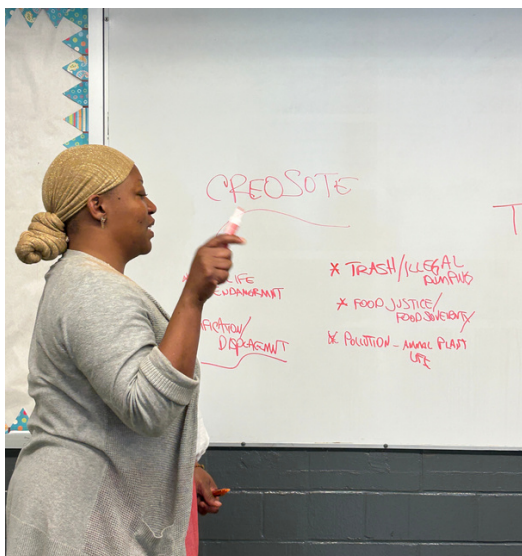 CREOSOTE
T
LIFE
ENDANGERMNT
FICATION/
DISPLACEMNT
* TRASH/ILLEGAL
DUMPING
* FOOD JUSTICE/
FOOD SOVEREIGNTY
* POLLUTION - ANIMAL PLANT
LIFE